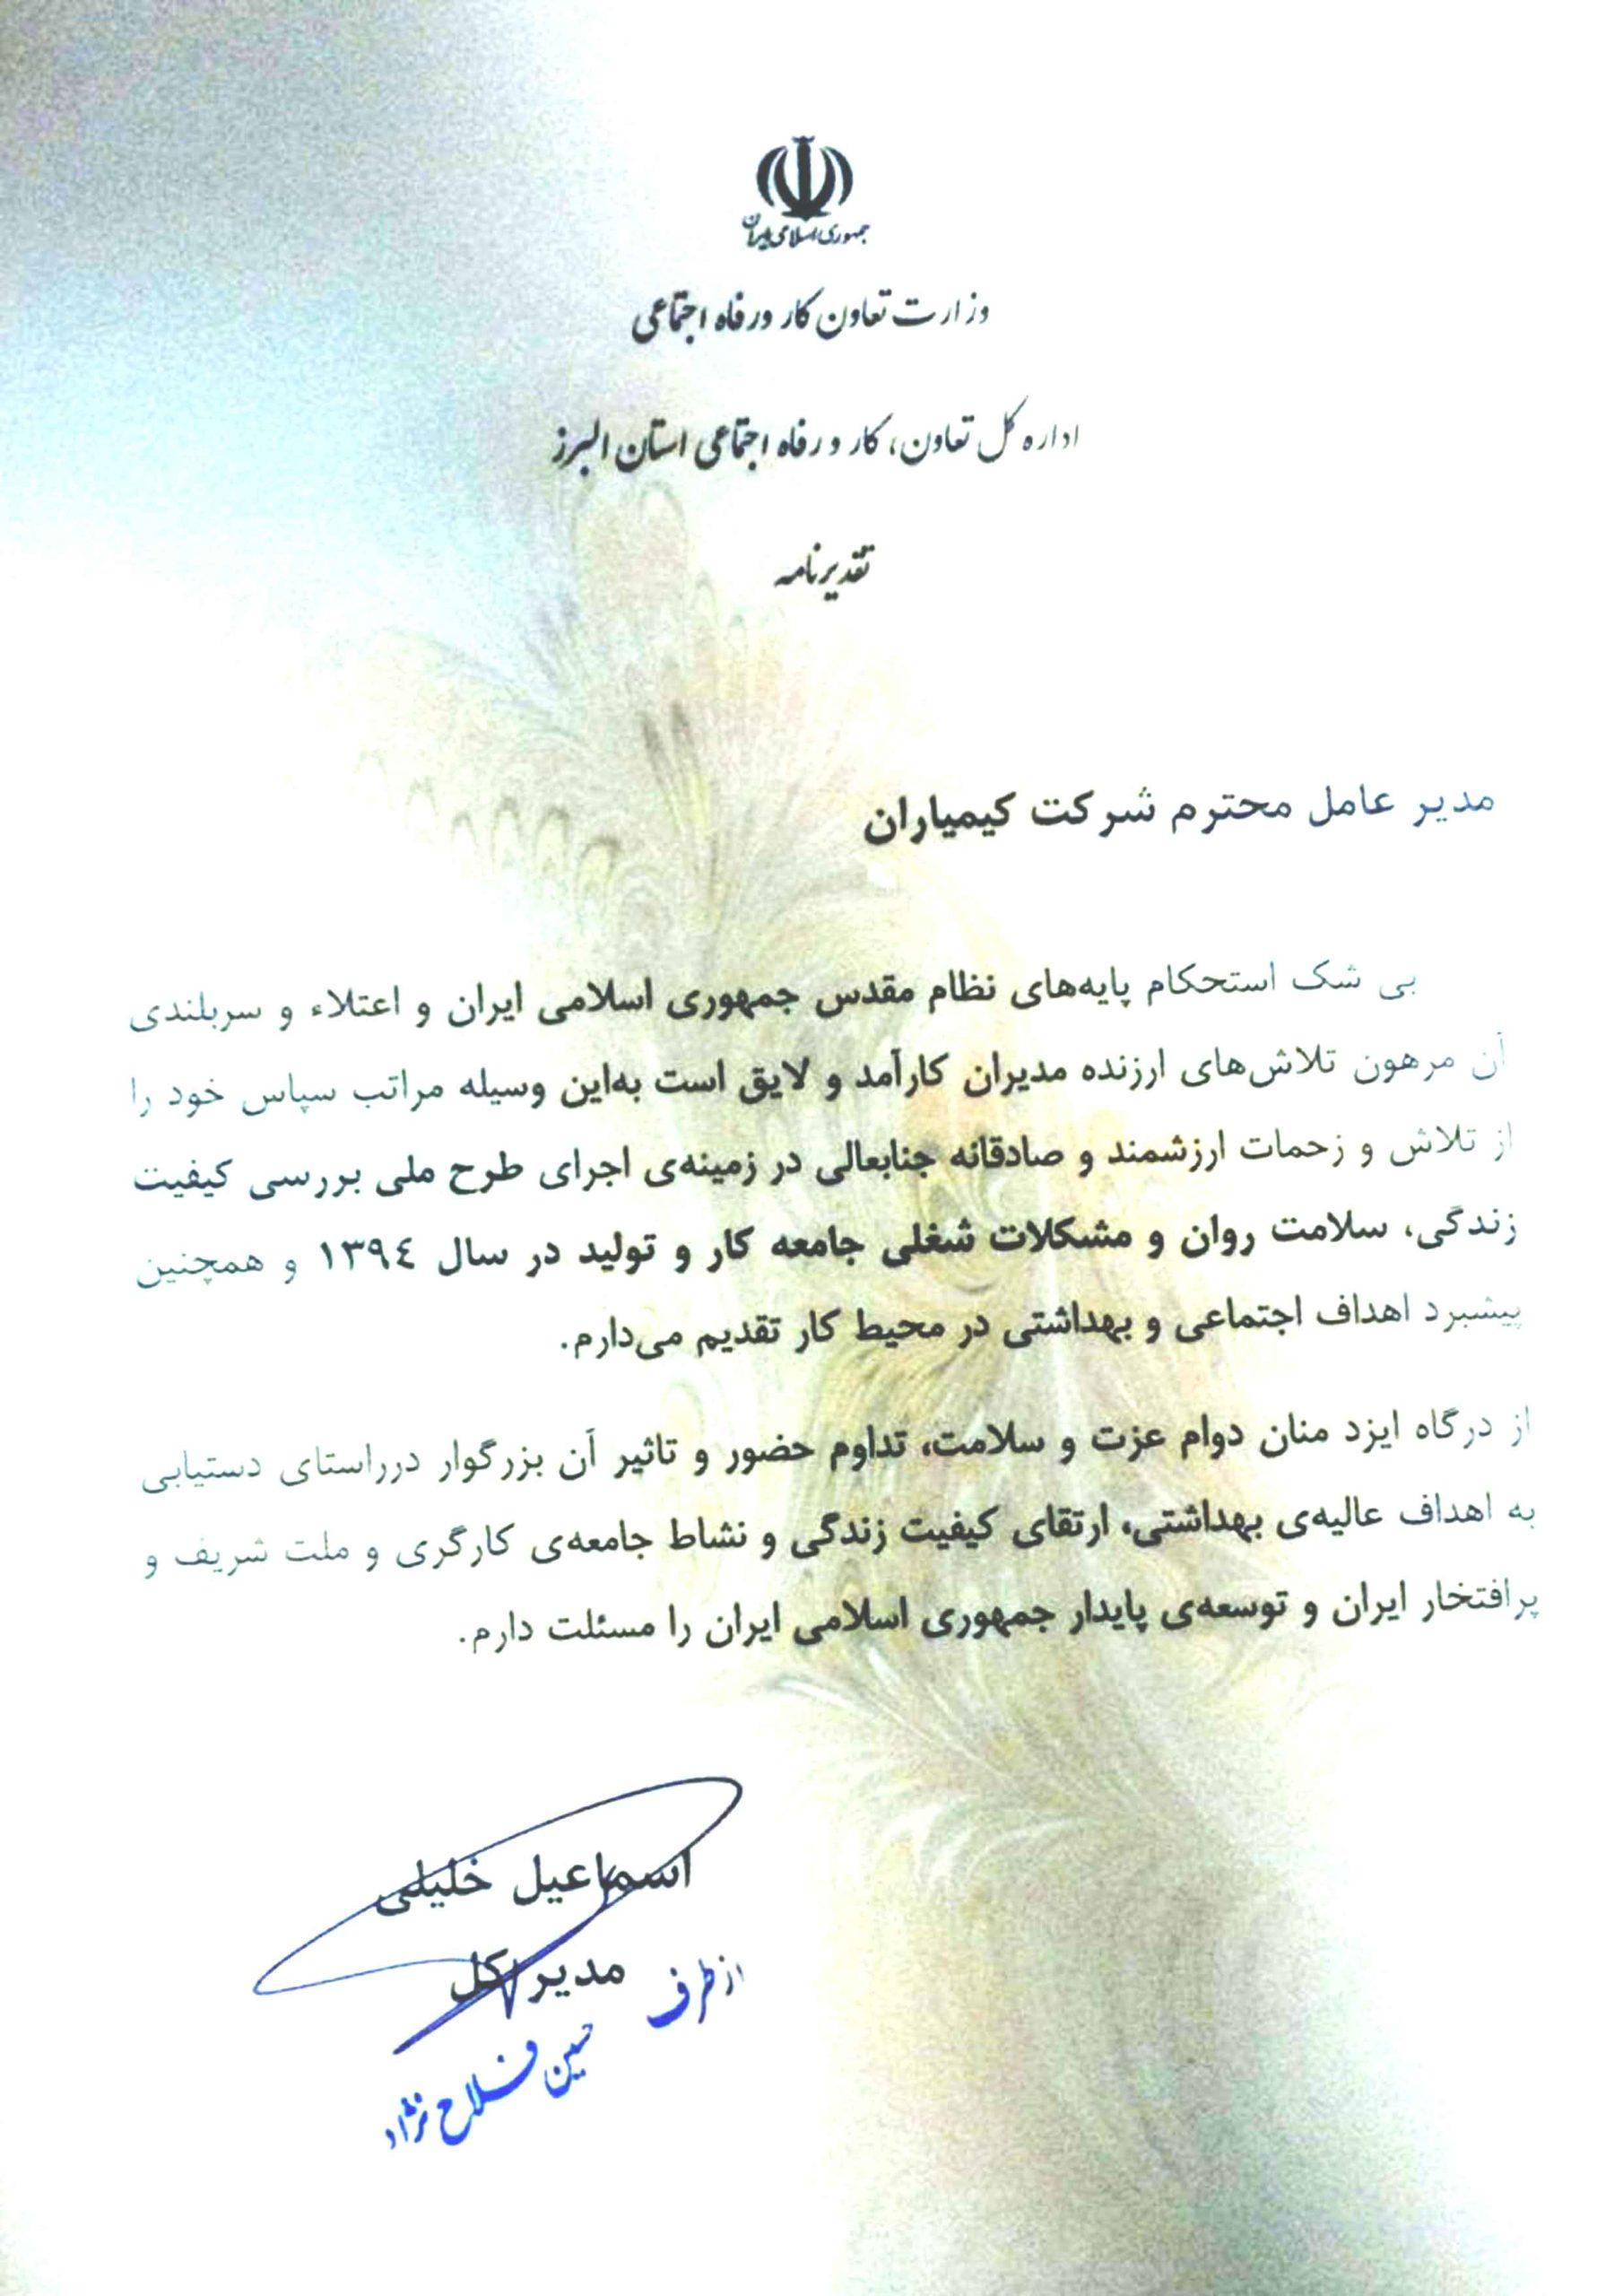 جمهوری اسلامی ایران
وزارت تعاون کار و رفاه اجتماعی
اداره کل تعاون، کار و رفاه اجتماعی استان البرز
تقدیرنامه
مدیر عامل محترم شرکت کیمیاران
بی شک استحکام پایه‌های نظام مقدس جمهوری اسلامی ایران و اعتلاء و سربلندی
آن مرهون تلاش‌های ارزنده مدیران کارآمد و لایق است به‌این وسیله مراتب سپاس خود را
از تلاش و زحمات ارزشمند و صادقانه جنابعالی در زمینه‌ی اجرای طرح ملی بررسی کیفیت
زندگی، سلامت روان و مشکلات شغلی جامعه کار و تولید در سال ۱۳۹٤ و همچنین
پیشبرد اهداف اجتماعی و بهداشتی در محیط کار تقدیم می‌دارم.
از درگاه ایزد منان دوام عزت و سلامت، تداوم حضور و تاثیر آن بزرگوار درراستای دستیابی
به اهداف عالیه‌ی بهداشتی، ارتقای کیفیت زندگی و نشاط جامعه‌ی کارگری و ملت شریف و
پرافتخار ایران و توسعه‌ی پایدار جمهوری اسلامی ایران را مسئلت دارم.
اسماعیل خلیلی
مدیر کل
از طرف
حسین فلاح نژاد